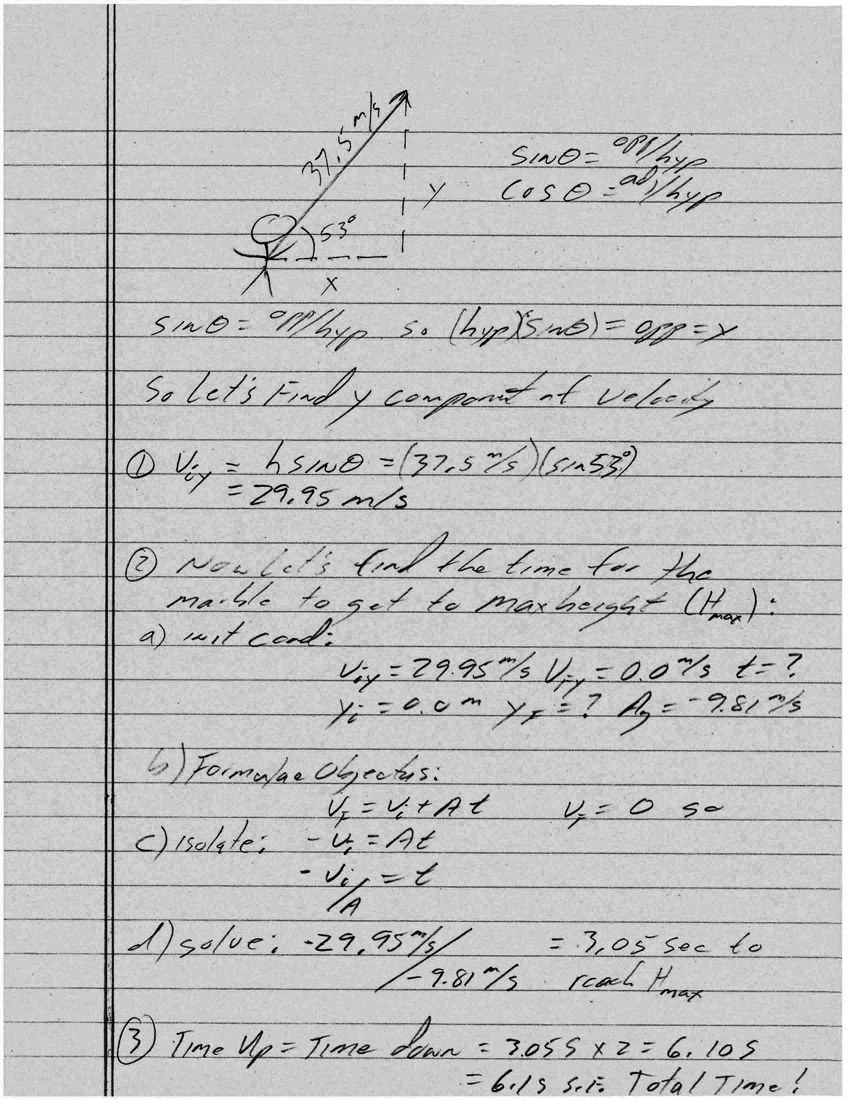 37.5 m/s
sinθ = opp/hyp
cosθ = adj/hyp
y
53°
x
sinθ = opp/hyp so (hyp)(sinθ) = opp = y
So Let's Find y component of velocity
① Viy = h sinθ = (37.5 m/s)(sin53°)
= 29.95 m/s
② Now Let's find the time for the
marble to get to max height (Hmax):
a) init cond:
Viy = 29.95 m/s Vfy = 0.0 m/s t = ?
yi = 0.0 m yf = ? Ag = -9.81 m/s
b) Formulae Objectus:
Vf = Vi + At Vf = 0 so
c) isolate: -Vi = At
-Vi/A = t
d) solve: -29.95 m/s / -9.81 m/s = 3.05 sec to
reach Hmax
③ Time Up = Time down = 3.05 s x 2 = 6.10 s
= 6.1 s Total Time!